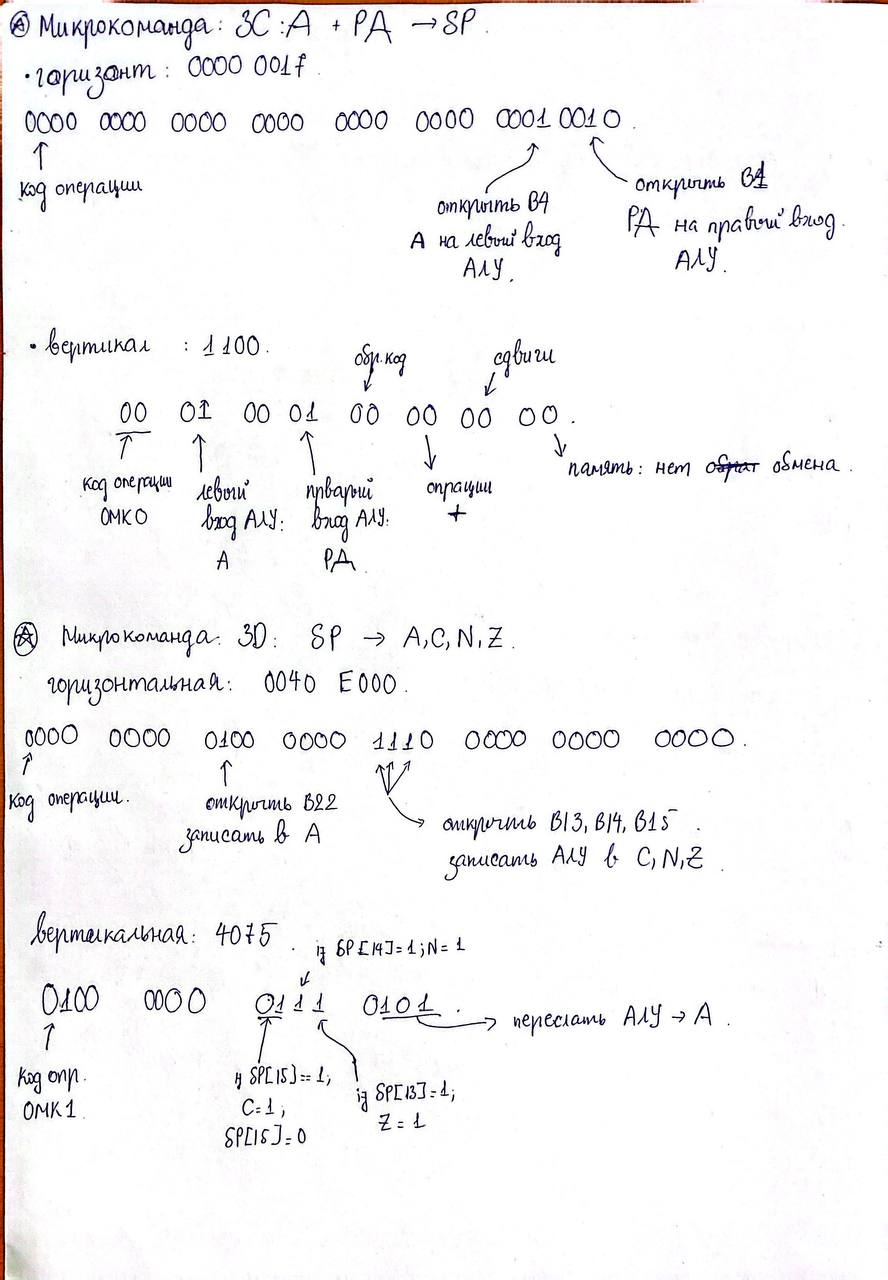 Микрокоманда: 3C: A + РД → SP.
• горизонт: 0000 001f.
0000 0000 0000 0000 0000 0000 0001 0010.
код операции
открыть B4
А на левый вход
АЛУ.
открыть B1
РД на правый вход.
АЛУ.
• вертикал : 1100.
обр.код
сдвиги
00 01 00 01 00 00 00 00.
код операции
ОМК0
левый
вход АЛУ:
А
прварый
вход АЛУ:
РД
опрации
+
память: нет обмена.
Микрокоманда: 3D: SP → A, C, N, Z.
горизонтальная: 0040 E000.
0000 0000 0100 0000 1110 0000 0000 0000.
код операции.
открыть B22
записать в А
открыть B13, B14, B15.
записать АЛУ в C, N, Z.
вертикальная: 4075.
if SP[14]=1; N=1
0100 0000 0111 0101.
переслать АЛУ → А.
код опр.
ОМК1
if SP[15]=1;
C=1;
SP[15]=0
if SP[13]=1;
Z=1